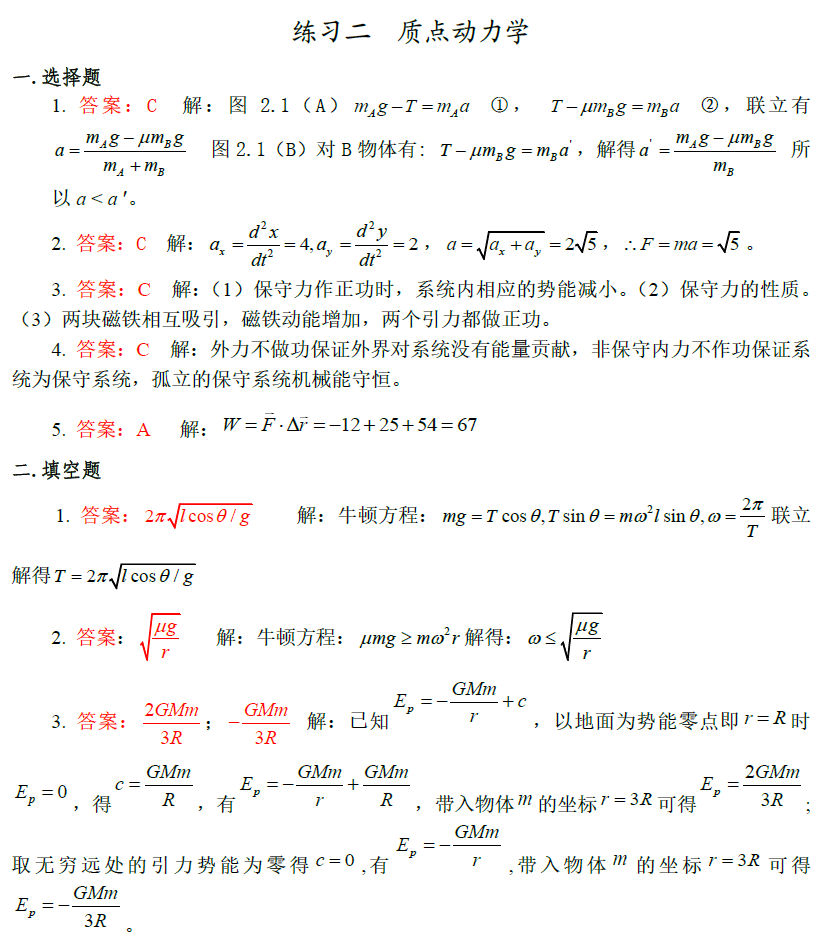 练习二 质点动力学
一.选择题
1. 答案：C 解：图 2.1（A）$m_A g - T = m_A a$ ①， $T - \mu m_B g = m_B a$ ②，联立有
$a = \frac{m_A g - \mu m_B g}{m_A + m_B}$ 图 2.1（B）对 B 物体有: $T - \mu m_B g = m_B a^{'}$，解得 $a^{'} = \frac{m_A g - \mu m_B g}{m_B}$ 所
以 a < a ′。
2. 答案：C 解：$a_x = \frac{d^2 x}{dt^2} = 4, a_y = \frac{d^2 y}{dt^2} = 2$，$a = \sqrt{a_x + a_y} = 2\sqrt{5}$，$\therefore F = ma = \sqrt{5}$。
3. 答案：C 解：（1）保守力作正功时，系统内相应的势能减小。（2）保守力的性质。
（3）两块磁铁相互吸引，磁铁动能增加，两个引力都做正功。
4. 答案：C 解：外力不做功保证外界对系统没有能量贡献，非保守内力不作功保证系
统为保守系统，孤立的保守系统机械能守恒。
5. 答案：A 解：$W = \vec{F} \cdot \Delta \vec{r} = -12 + 25 + 54 = 67$
二.填空题
1. 答案：$2\pi\sqrt{l\cos\theta / g}$ 解：牛顿方程：$mg = T\cos\theta, T\sin\theta = m\omega^2 l\sin\theta, \omega = \frac{2\pi}{T}$ 联立
解得 $T = 2\pi\sqrt{l\cos\theta / g}$
2. 答案：$\sqrt{\frac{\mu g}{r}}$ 解：牛顿方程：$\mu mg \geq m\omega^2 r$ 解得：$\omega \leq \sqrt{\frac{\mu g}{r}}$
3. 答案：$\frac{2GMm}{3R}$；$-\frac{GMm}{3R}$ 解：已知 $E_p = -\frac{GMm}{r} + c$，以地面为势能零点即 $r = R$ 时
$E_p = 0$，得 $c = \frac{GMm}{R}$，有 $E_p = -\frac{GMm}{r} + \frac{GMm}{R}$，带入物体 $m$ 的坐标 $r = 3R$ 可得 $E_p = \frac{2GMm}{3R}$；
取无穷远处的引力势能为零得 $c = 0$,有 $E_p = -\frac{GMm}{r}$,带入物体 $m$ 的坐标 $r = 3R$ 可得
$E_p = -\frac{GMm}{3R}$。